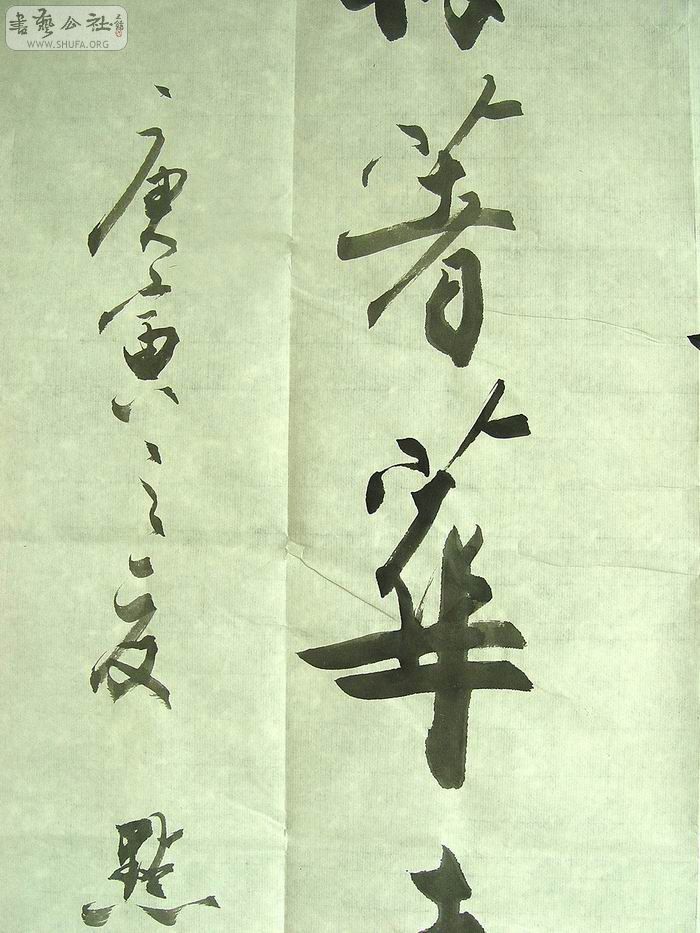 書藝公社
WWW.SHUFA.ORG
著華
庚寅之夏 點